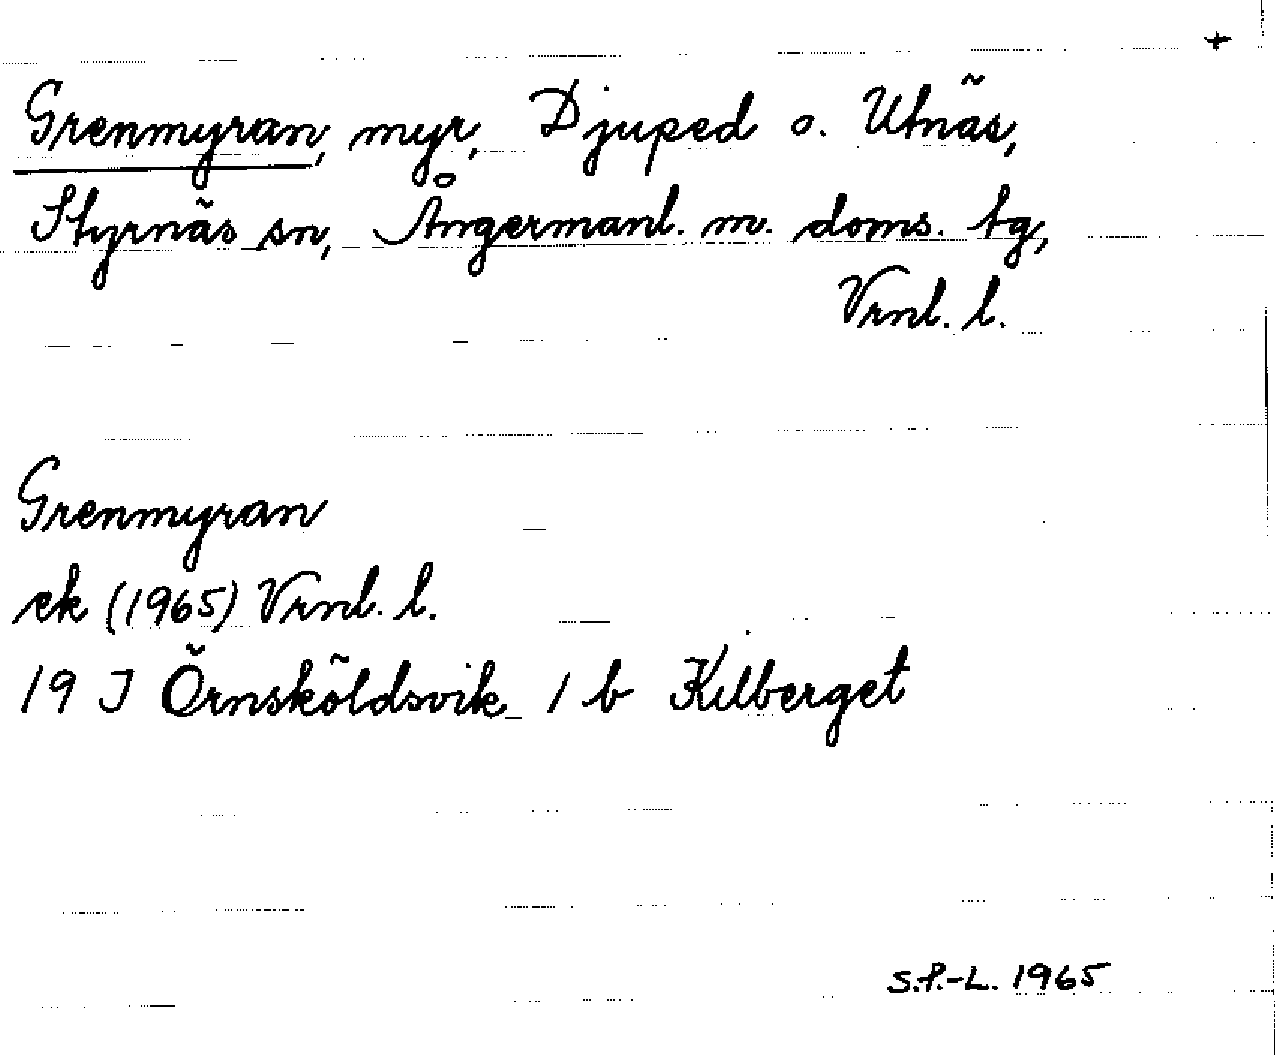 +
Grenmyran, myr, Djuped o. Utnäs,
Styrnäs sn, Ångermanl. m. doms. tg,
Vrnl. l.
Grenmyran
ek (1965) Vrnl. l.
19 J Örnsköldsvik 1 b Kilberget
S.P.-L. 1965